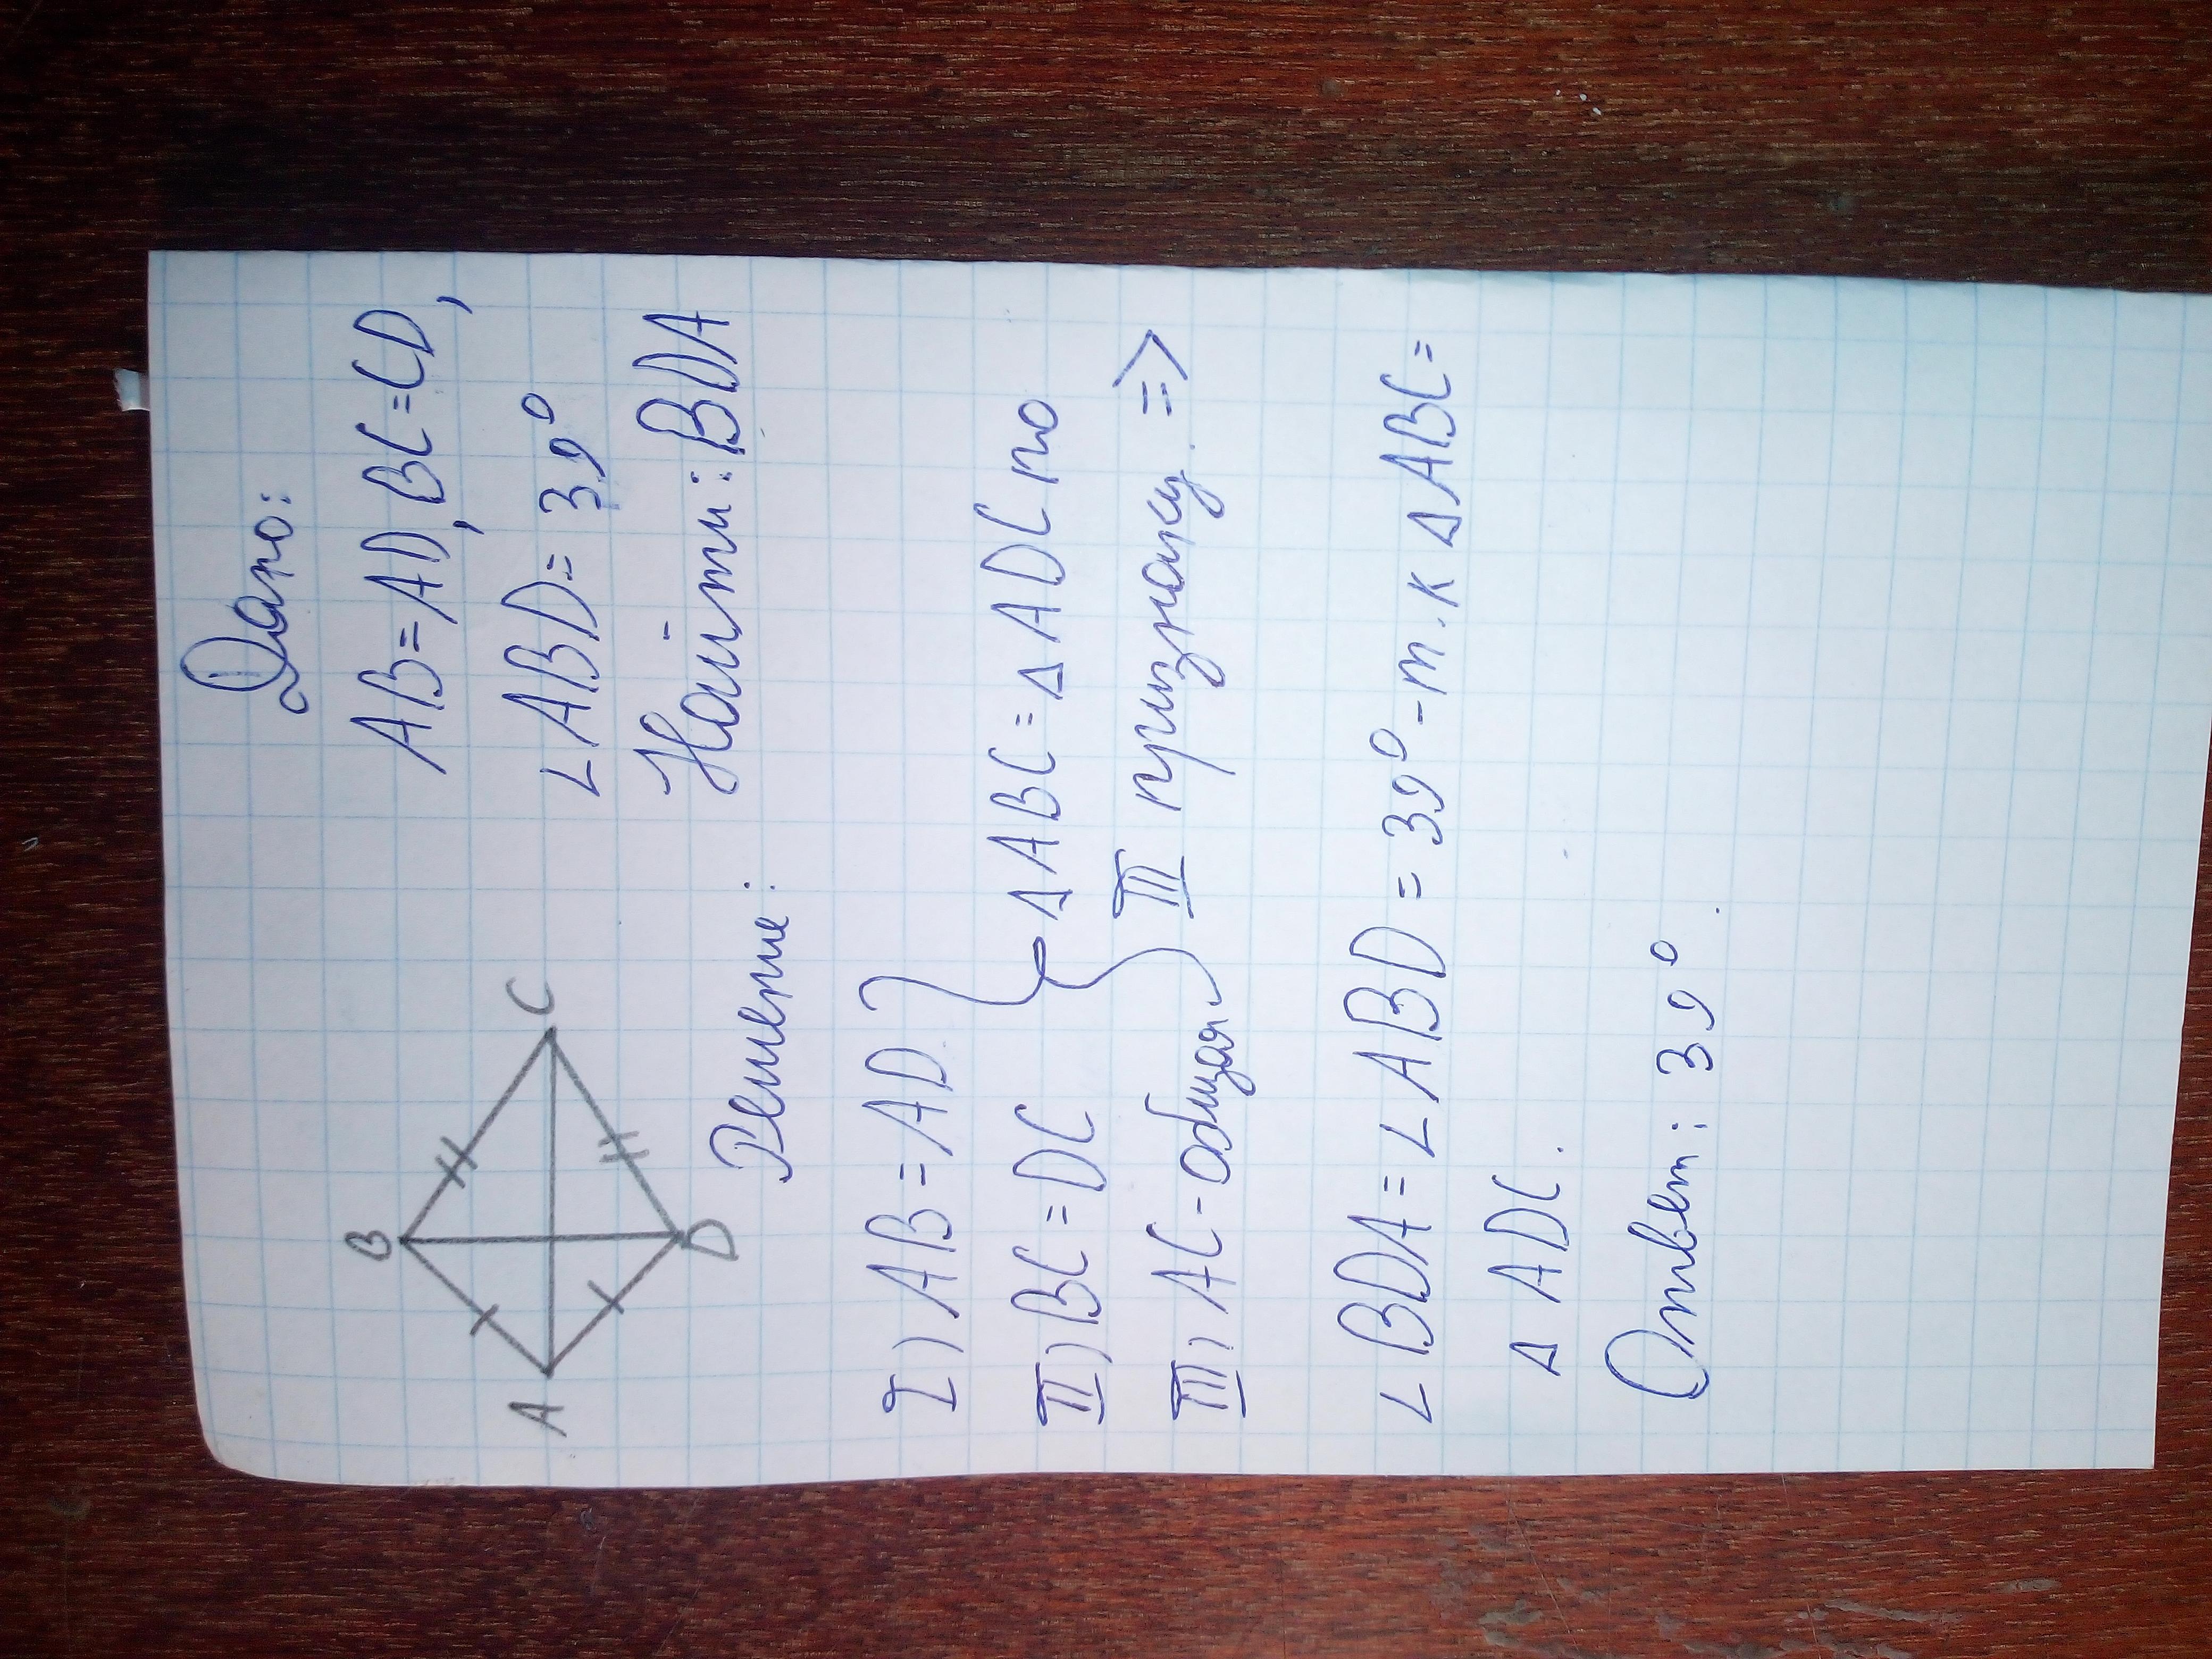 Дано:
AB=AD, BC=CD,
∠ABD=39°
Найти: BDA
B
A
C
D
Решение:
I) AB=AD
II) BC=DC
III) AC-общая
△ABC=△ADC по
III признаку. =>
∠BDA=∠ABD=39°-т.к △ABC=
△ADC.
Ответ: 39°.